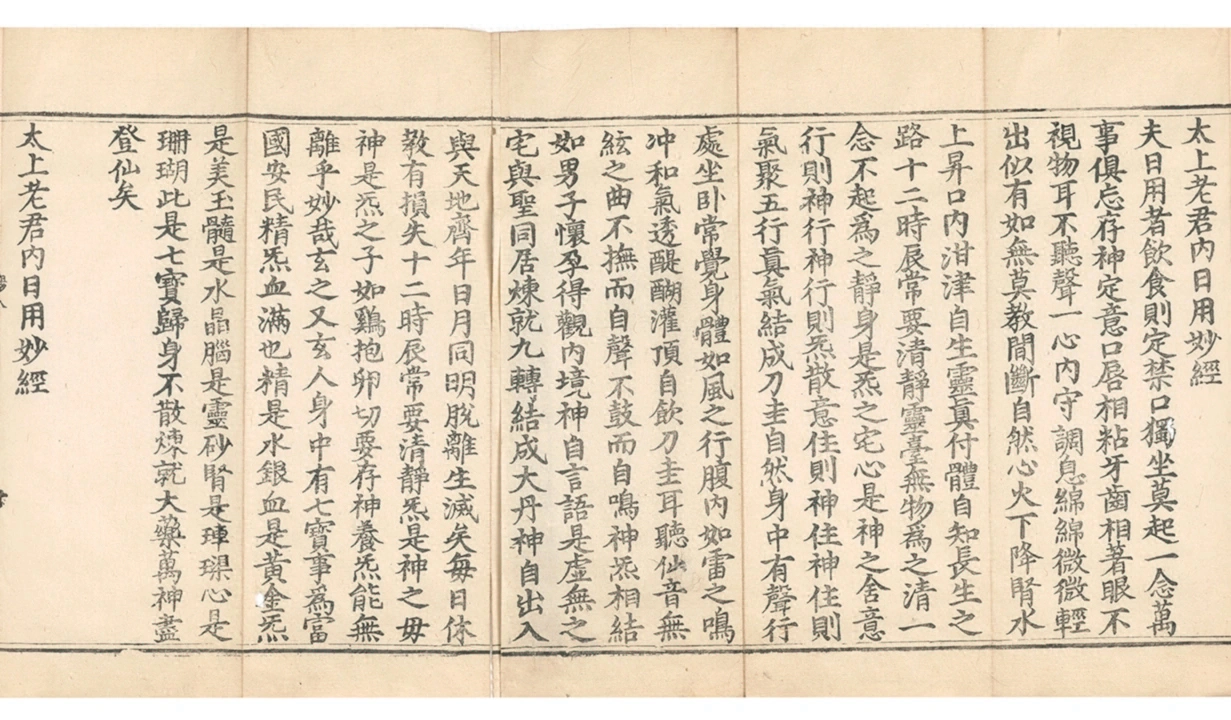 太上老君内日用妙經
夫日用者飲食則定禁口獨坐莫起一念萬
事俱忘存神定意口唇相粘牙齒相著眼不
視物耳不聽聲一心内守調息綿綿微微輕
出似有如無莫教間斷自然心火下降腎水
上昇口内泔津自生靈眞付體自知長生之
路十二時辰常要清靜靈臺無物爲之清一
念不起爲之靜身是炁之宅心是神之舍意
行則神行神行則炁散意住則神住神住則
氣聚五行眞氣結成刀圭自然身中有聲行
處坐卧常覺身體如風之行腹内如雷之鳴
冲和氣透醍醐灌頂自飲刀圭耳聽仙音無
絃之曲不撫而自聲不鼓而自鳴神炁相結
如男子懷孕得觀内境神自言語是虚無之
宅與聖同居煉就九轉結成大丹神自出入
與天地齊年日月同明脫離生滅矣毎日休
教有損失十二時辰常要清靜炁是神之毋
神是炁之子如鷄抱卵切要存神養炁能無
離乎妙哉玄之又玄人身中有七寳事爲富
國安民精炁血滿也精是水銀血是黃金炁
是美玉髓是水晶腦是靈砂腎是硨磲心是
珊瑚此是七寳歸身不散煉就大藥萬神盡
登仙矣
太上老君内日用妙經